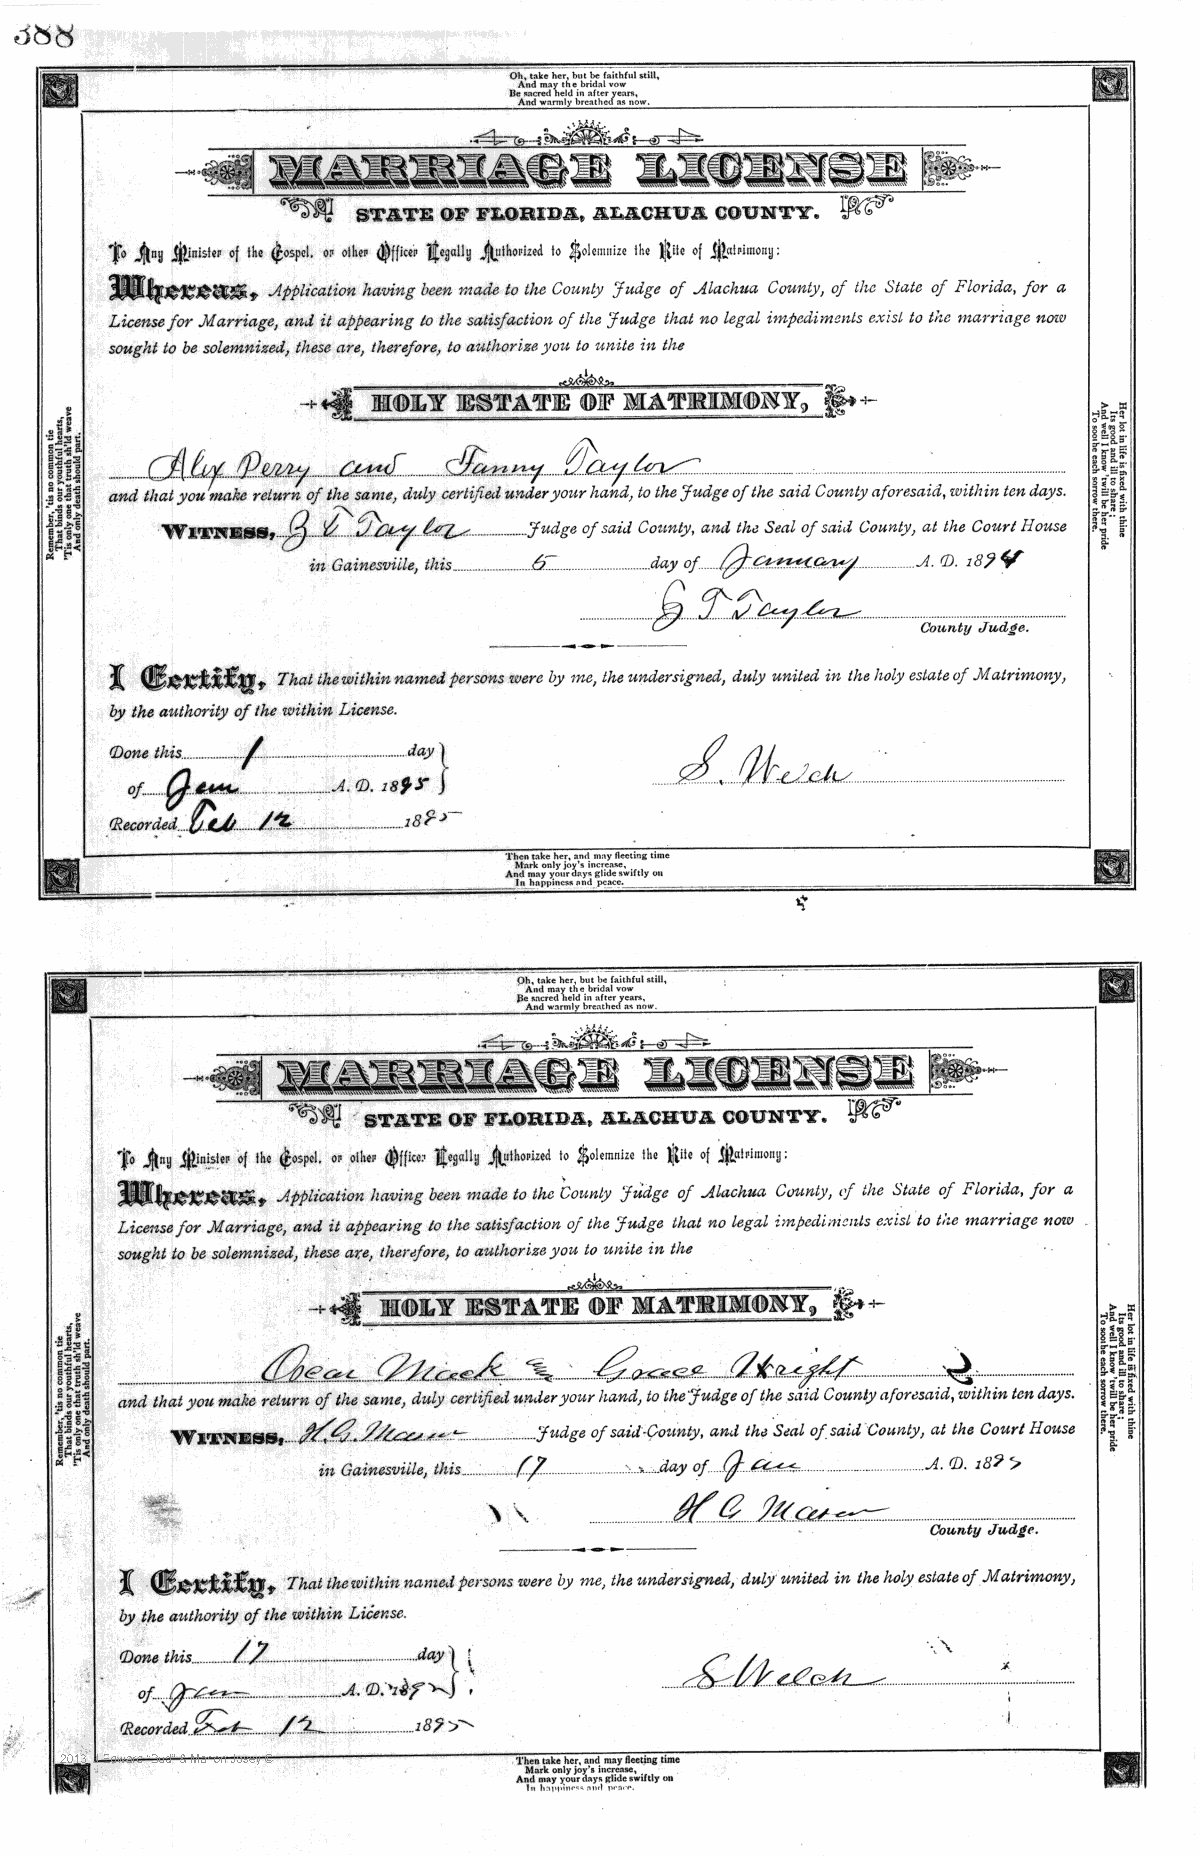 388
Oh, take her, but be faithful still,
And may the bridal vow
Be sacred held in after years,
And warmly breathed as now.
MARRIAGE LICENSE
STATE OF FLORIDA, ALACHUA COUNTY.
To Any Minister of the Gospel, or other Officer Legally Authorized to Solemnize the Rite of Matrimony:
Whereas, Application having been made to the County Judge of Alachua County, of the State of Florida, for a
License for Marriage, and it appearing to the satisfaction of the Judge that no legal impediments exist to the marriage now
sought to be solemnized, these are, therefore, to authorize you to unite in the
HOLY ESTATE OF MATRIMONY,
Alex Perry and Fanny Taylor
and that you make return of the same, duly certified under your hand, to the Judge of the said County aforesaid, within ten days.
WITNESS, G T Taylor Judge of said County, and the Seal of said County, at the Court House
in Gainesville, this 5 day of January A. D. 1894
G T Taylor
County Judge.
I Certify, That the within named persons were by me, the undersigned, duly united in the holy estate of Matrimony,
by the authority of the within License.
Done this 1 day
of Jan A. D. 1895
S. Welch
Recorded Feb 12 1895
Remember, 'tis no common tie
That binds our youthful hearts,
'Tis only one that truth sh'ld weave
And only death should part.
Her lot in life is fixed with thine
Its good and ill to share;
And well I know 'twill be her pride
To soothe each sorrow there.
Then take her, and may fleeting time
Mark only joy's increase,
And may your days glide swiftly on
In happiness and peace.
Oh, take her, but be faithful still,
And may the bridal vow
Be sacred held in after years,
And warmly breathed as now.
MARRIAGE LICENSE
STATE OF FLORIDA, ALACHUA COUNTY.
To Any Minister of the Gospel, or other Officer Legally Authorized to Solemnize the Rite of Matrimony:
Whereas, Application having been made to the County Judge of Alachua County, of the State of Florida, for a
License for Marriage, and it appearing to the satisfaction of the Judge that no legal impediments exist to the marriage now
sought to be solemnized, these are, therefore, to authorize you to unite in the
HOLY ESTATE OF MATRIMONY,
Oscar Mack and Grace Wright
and that you make return of the same, duly certified under your hand, to the Judge of the said County aforesaid, within ten days.
WITNESS, H. G. Mason Judge of said County, and the Seal of said County, at the Court House
in Gainesville, this 17 day of Jan A. D. 1895
H G Mason
County Judge.
I Certify, That the within named persons were by me, the undersigned, duly united in the holy estate of Matrimony,
by the authority of the within License.
Done this 17 day
of Jan A. D. 189
S Welch
Recorded Feb 12 1895
Remember, 'tis no common tie
That binds our youthful hearts,
'Tis only one that truth sh'ld weave
And only death should part.
Her lot in life is fixed with thine
Its good and ill to share;
And well I know 'twill be her pride
To soothe each sorrow there.
2013
Then take her, and may fleeting time
Mark only joy's increase,
And may your days glide swiftly on
In happiness and peace.